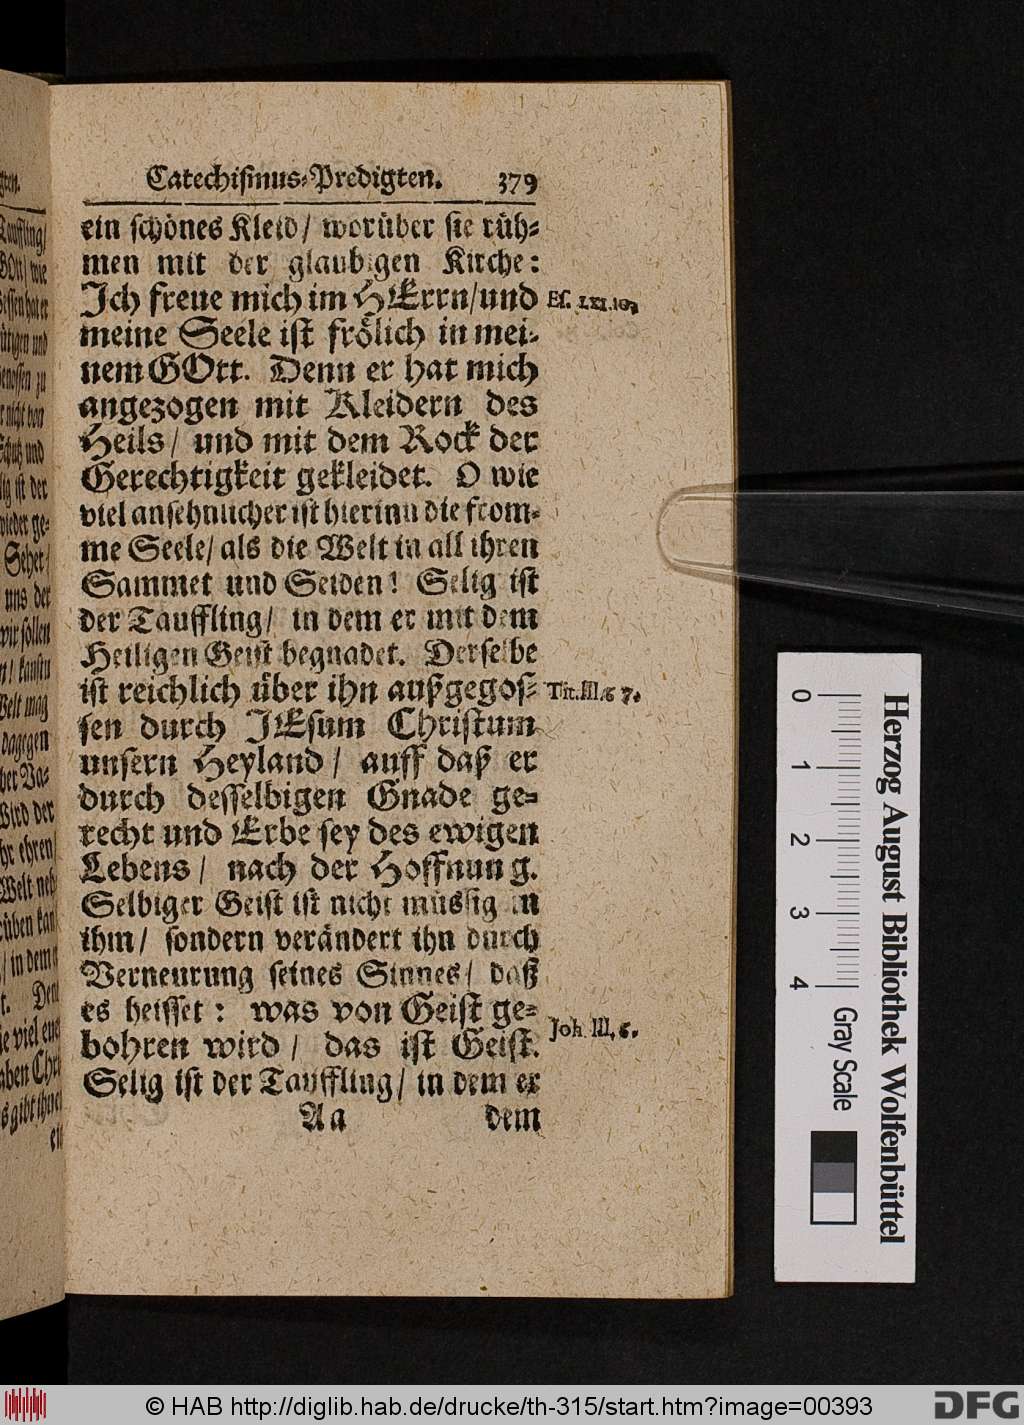 Catechismus-Predigten. 379
ein schönes Kleid/ worüber sie rüh-
men mit der glaubigen Kirche:
Jch freue mich im HErrn/und
Es. LXI. 10.
meine Seele ist frölich in mei-
nem GOtt. Denn er hat mich
angezogen mit Kleidern des
Heils/ und mit dem Rock der
Gerechtigkeit gekleidet. O wie
viel ansehnlicher ist hierinn die from-
me Seele/ als die Welt in all ihren
Sammet und Seiden! Selig ist
der Tauffling/ in dem er mit dem
Heiligen Geist begnadet. Derselbe
ist reichlich über ihn außgegos-
Tit. III. 6 7.
sen durch JEsum Christum
unsern Heyland/ auff daß er
durch desselbigen Gnade ge-
recht und Erbe sey des ewigen
Lebens/ nach der Hoffnung.
Selbiger Geist ist nicht müssig in
ihm/ sondern verändert ihn durch
Verneurung seines Sinnes/ daß
es heisset: was von Geist ge-
bohren wird/ das ist Geist.
Joh. III, 6.
Selig ist der Tauffling/ in dem er
Aa dem
Herzog August Bibliothek Wolfenbüttel
0 1 2 3 4 Gray Scale
© HAB http://diglib.hab.de/drucke/th-315/start.htm?image=00393
DFG